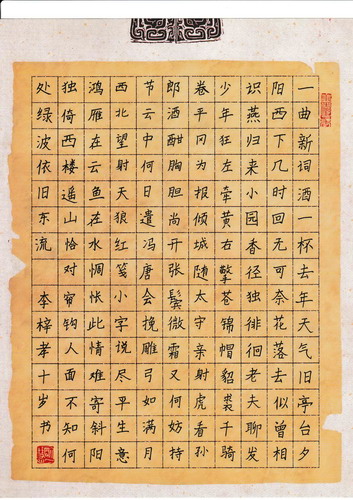 一曲新词酒一杯去年天气旧亭台夕
阳西下几时回无可奈花落去似曾相
识燕归来小园香径独徘徊老夫聊发
少年狂左牵黄右擎苍锦帽貂裘千骑
卷平冈为报倾城随太守亲射虎看孙
郎酒酣胸胆尚开张鬓微霜又何妨持
节云中何日遣冯唐会挽雕弓如满月
西北望射天狼红笺小字说尽早生意
鸿雁在云鱼在水惆怅此情难寄斜阳
独倚西楼遥山恰对帘钩人面不知何
处绿波依旧东流 李梓孝十岁书